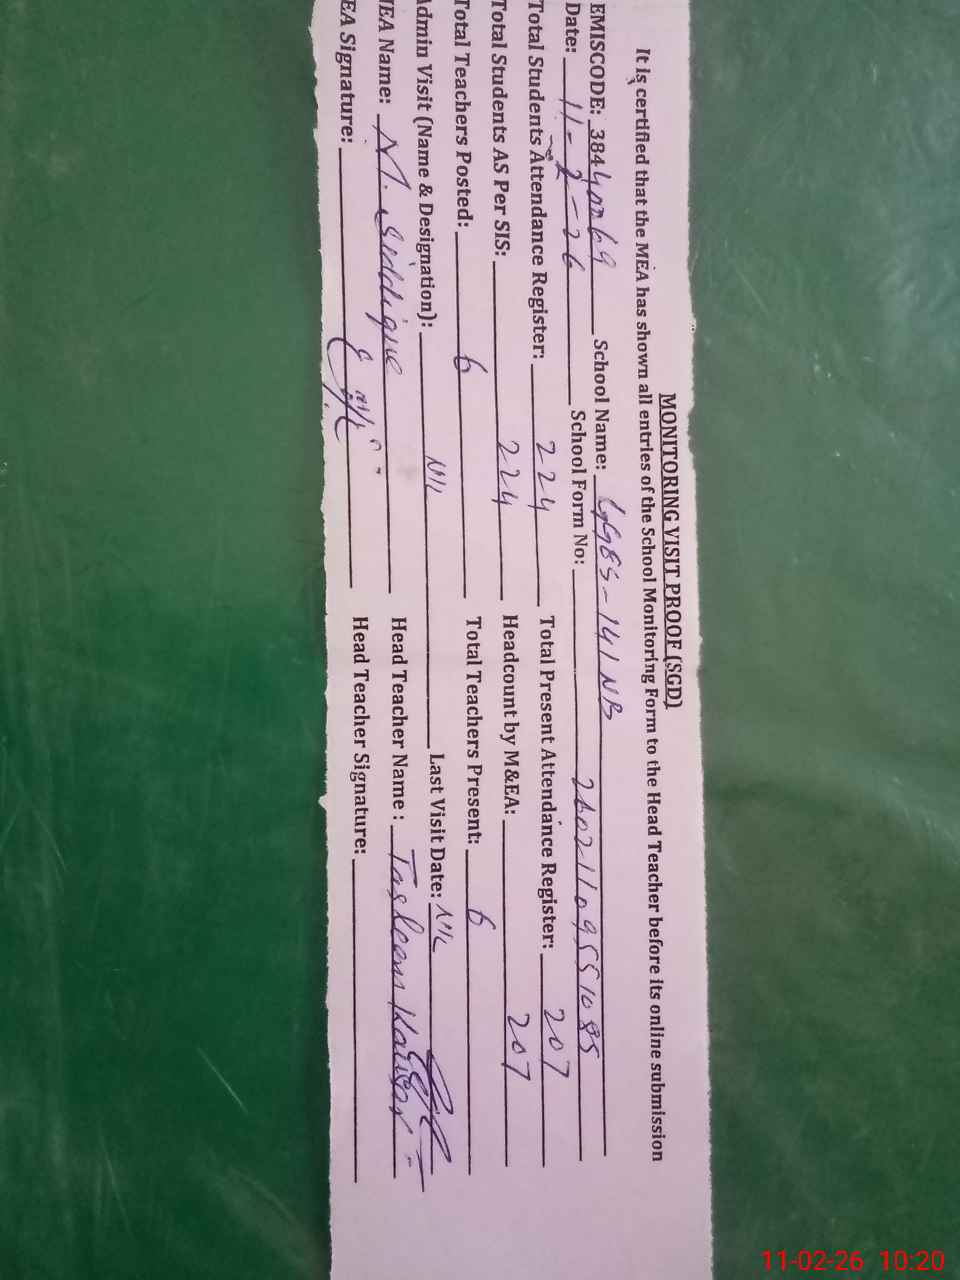 MONITORING VISIT PROOF (SGD)
It is certified that the MEA has shown all entries of the School Monitoring Form to the Head Teacher before its online submission
EMISCODE: 38440269 School Name: GGES-141 NB
Date: 11-2-26 School Form No: 26021109551085
Total Students Attendance Register: 224 Total Present Attendance Register: 207
Total Students AS Per SIS: 224 Headcount by M&EA: 207
Total Teachers Posted: 6 Total Teachers Present: 6
Admin Visit (Name & Designation): NIL Last Visit Date: NIL
MEA Name: M. Siddique Head Teacher Name : Tasleem Kausar
EA Signature: Head Teacher Signature:
11-02-26 10:20